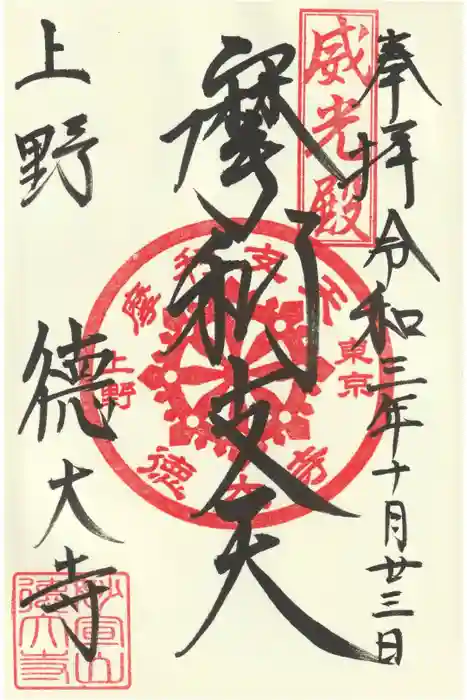 奉拝 令和三年十月廿三日
威光殿
摩利支天
摩利支天
東京
上野
徳大寺
上野 徳大寺
妙宣山
徳大寺